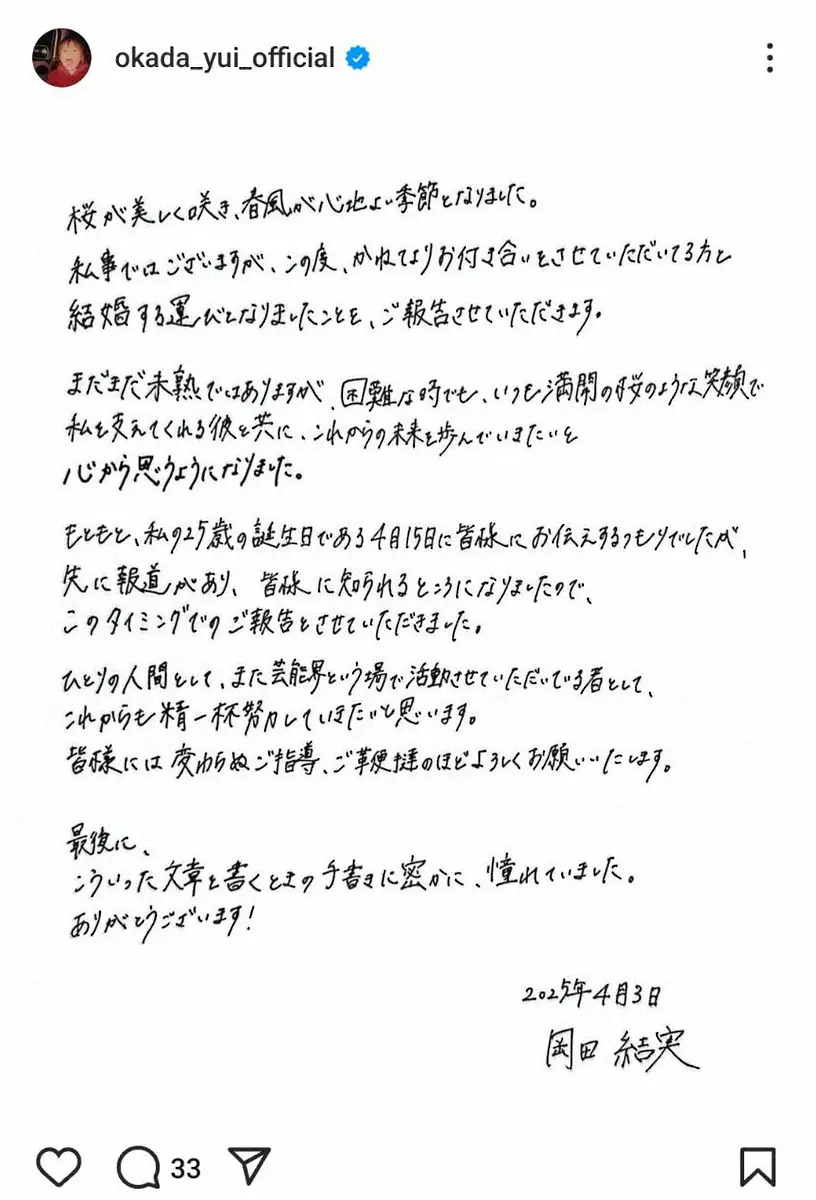 okada_yui_official
桜が美しく咲き、春風が心地よい季節となりました。
私事ではございますが、この度、かねてよりお付き合いをさせていただいてる方と
結婚する運びとなりましたことを、ご報告させていただきます。
まだまだ未熟ではありますが、困難な時でも、いつも満開の桜のような笑顔で
私を支えてくれる彼と共に、これからの未来を歩んでいきたいと
心から思うようになりました。
もともと、私の25歳の誕生日である4月15日に皆様にお伝えするつもりでしたが、
先に報道があり、皆様に知られるところになりましたので、
このタイミングでのご報告とさせていただきました。
ひとりの人間として、また芸能界という場で活動させていただいている者として、
これからも精一杯努力していきたいと思います。
皆様には変わらぬご指導、ご鞭撻のほどよろしくお願いいたします。
最後に、
こういった文章を書くときの手書きに密かに、憧れていました。
ありがとうございます!
2025年4月3日
岡田 結実
33